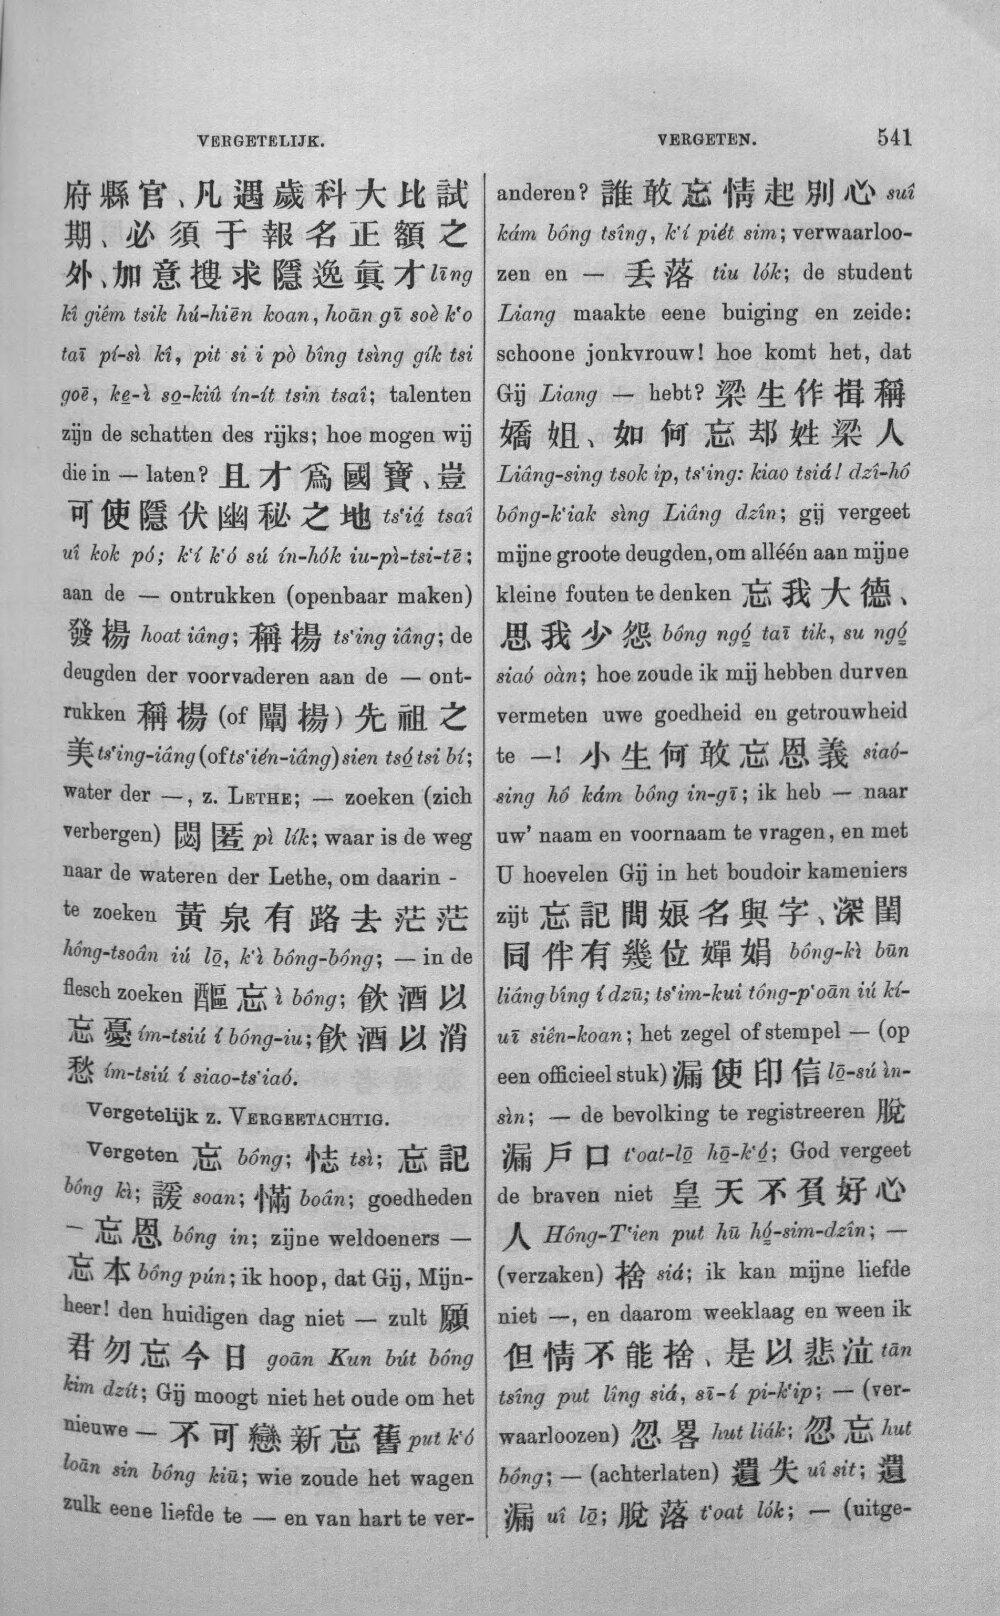 VERGETELIJK.
府縣官、凡遇歲科大比試
期、必須于報名正額之
外、加意搜求隱逸眞才 līng
kî giêm tsik hú-hiēn koan, hoān gī soè k‘o
taī pí-sì kî, pit si i pò bîng tsìng gík tsi
goē, ke̱-ì so̱-kiû ín-ít tsin tsaî; talenten
zijn de schatten des rijks; hoe mogen wij
die in — laten? 且才爲國寶、豈
可使隱伏幽秘之地 ts‘iá̱ tsaî
uî kok pó; k‘í k‘ó sú ín-hók iu-pì-tsi-tē;
aan de — ontrukken (openbaar maken)
發揚 hoat iâng; 稱揚 ts‘ing iâng; de
deugden der voorvaderen aan de — ont-
rukken 稱揚 (of 闡揚) 先祖之
美 ts‘ing-iâng (of ts‘ién-iâng) sien tsó̱ tsi bí;
water der —, z. LETHE; — zoeken (zich
verbergen) 閟匿 pì lík; waar is de weg
naar de wateren der Lethe, om daarin -
te zoeken 黃泉有路去茫茫
hông-tsoân iú lō̱, k‘ì bông-bông; — in de
flesch zoeken 醧忘 ì bông; 飲酒以
忘憂 ím-tsiú í bóng-iu; 飲酒以消
愁 ím-tsiú í siao-ts‘iaó.
Vergetelijk z. VERGEETACHTIG.
Vergeten 忘 bông; 恚 tsì; 忘記
bông kì; 諼 soan; 慲 boân; goedheden
— 忘恩 bông in; zijne weldoeners —
忘本 bông pún; ik hoop, dat Gij, Mijn-
heer! den huidigen dag niet — zult 願
君勿忘今日 goān Kun bút bông
kim dzít; Gij moogt niet het oude om het
nieuwe — 不可戀新忘舊 put k‘ó
loān sin bông kiū; wie zoude het wagen
zulk eene liefde te — en van hart te ver-
VERGETEN. 541
anderen? 誰敢忘情起別心 suî
kám bông tsîng, k‘í piét sim; verwaarloo-
zen en — 丢落 tiu lók; de student
Liang maakte eene buiging en zeide:
schoone jonkvrouw! hoe komt het, dat
Gij Liang — hebt? 梁生作揖稱
嬌姐、如何忘却姓梁人
Liâng-sing tsok ip, ts‘ing: kiao tsiá! dzî-hô
bông-k‘iak sìng Liâng dzîn; gij vergeet
mijne groote deugden, om alléén aan mijne
kleine fouten te denken 忘我大德、
思我少怨 bông ngó̱ taī tik, su ngó̱
siaó oàn; hoe zoude ik mij hebben durven
vermeten uwe goedheid en getrouwheid
te —! 小生何敢忘恩義 siaó-
sing hô kám bông in-gī; ik heb — naar
uw’ naam en voornaam te vragen, en met
U hoevelen Gij in het boudoir kameniers
zijt 忘記問娘名與字、深閨
同伴有幾位嬋娟 bông-kì būn
liáng bíng í dzū; ts‘im-kui tông-p‘oān iú kí-
uī siên-koan; het zegel of stempel — (op
een officieel stuk) 漏使印信 lō̱-sú ìn-
sìn; — de bevolking te registreeren 脫
漏戶口 t‘oat-lō̱ hō̱-k‘ó̱; God vergeet
de braven niet 皇天不負好心
人 Hông-T‘ien put hū hó̱-sim-dzîn; —
(verzaken) 捨 siá; ik kan mijne liefde
niet —, en daarom weeklaag en ween ik
但情不能捨、是以悲泣 tān
tsîng put lîng siá, sī-í pi-k‘ip; — (ver-
waarloozen) 忽畧 hut liák; 忽忘 hut
bông; — (achterlaten) 遺失 uî sit; 遺
漏 uî lō̱; 脫落 t‘oat lók; — (uitge-